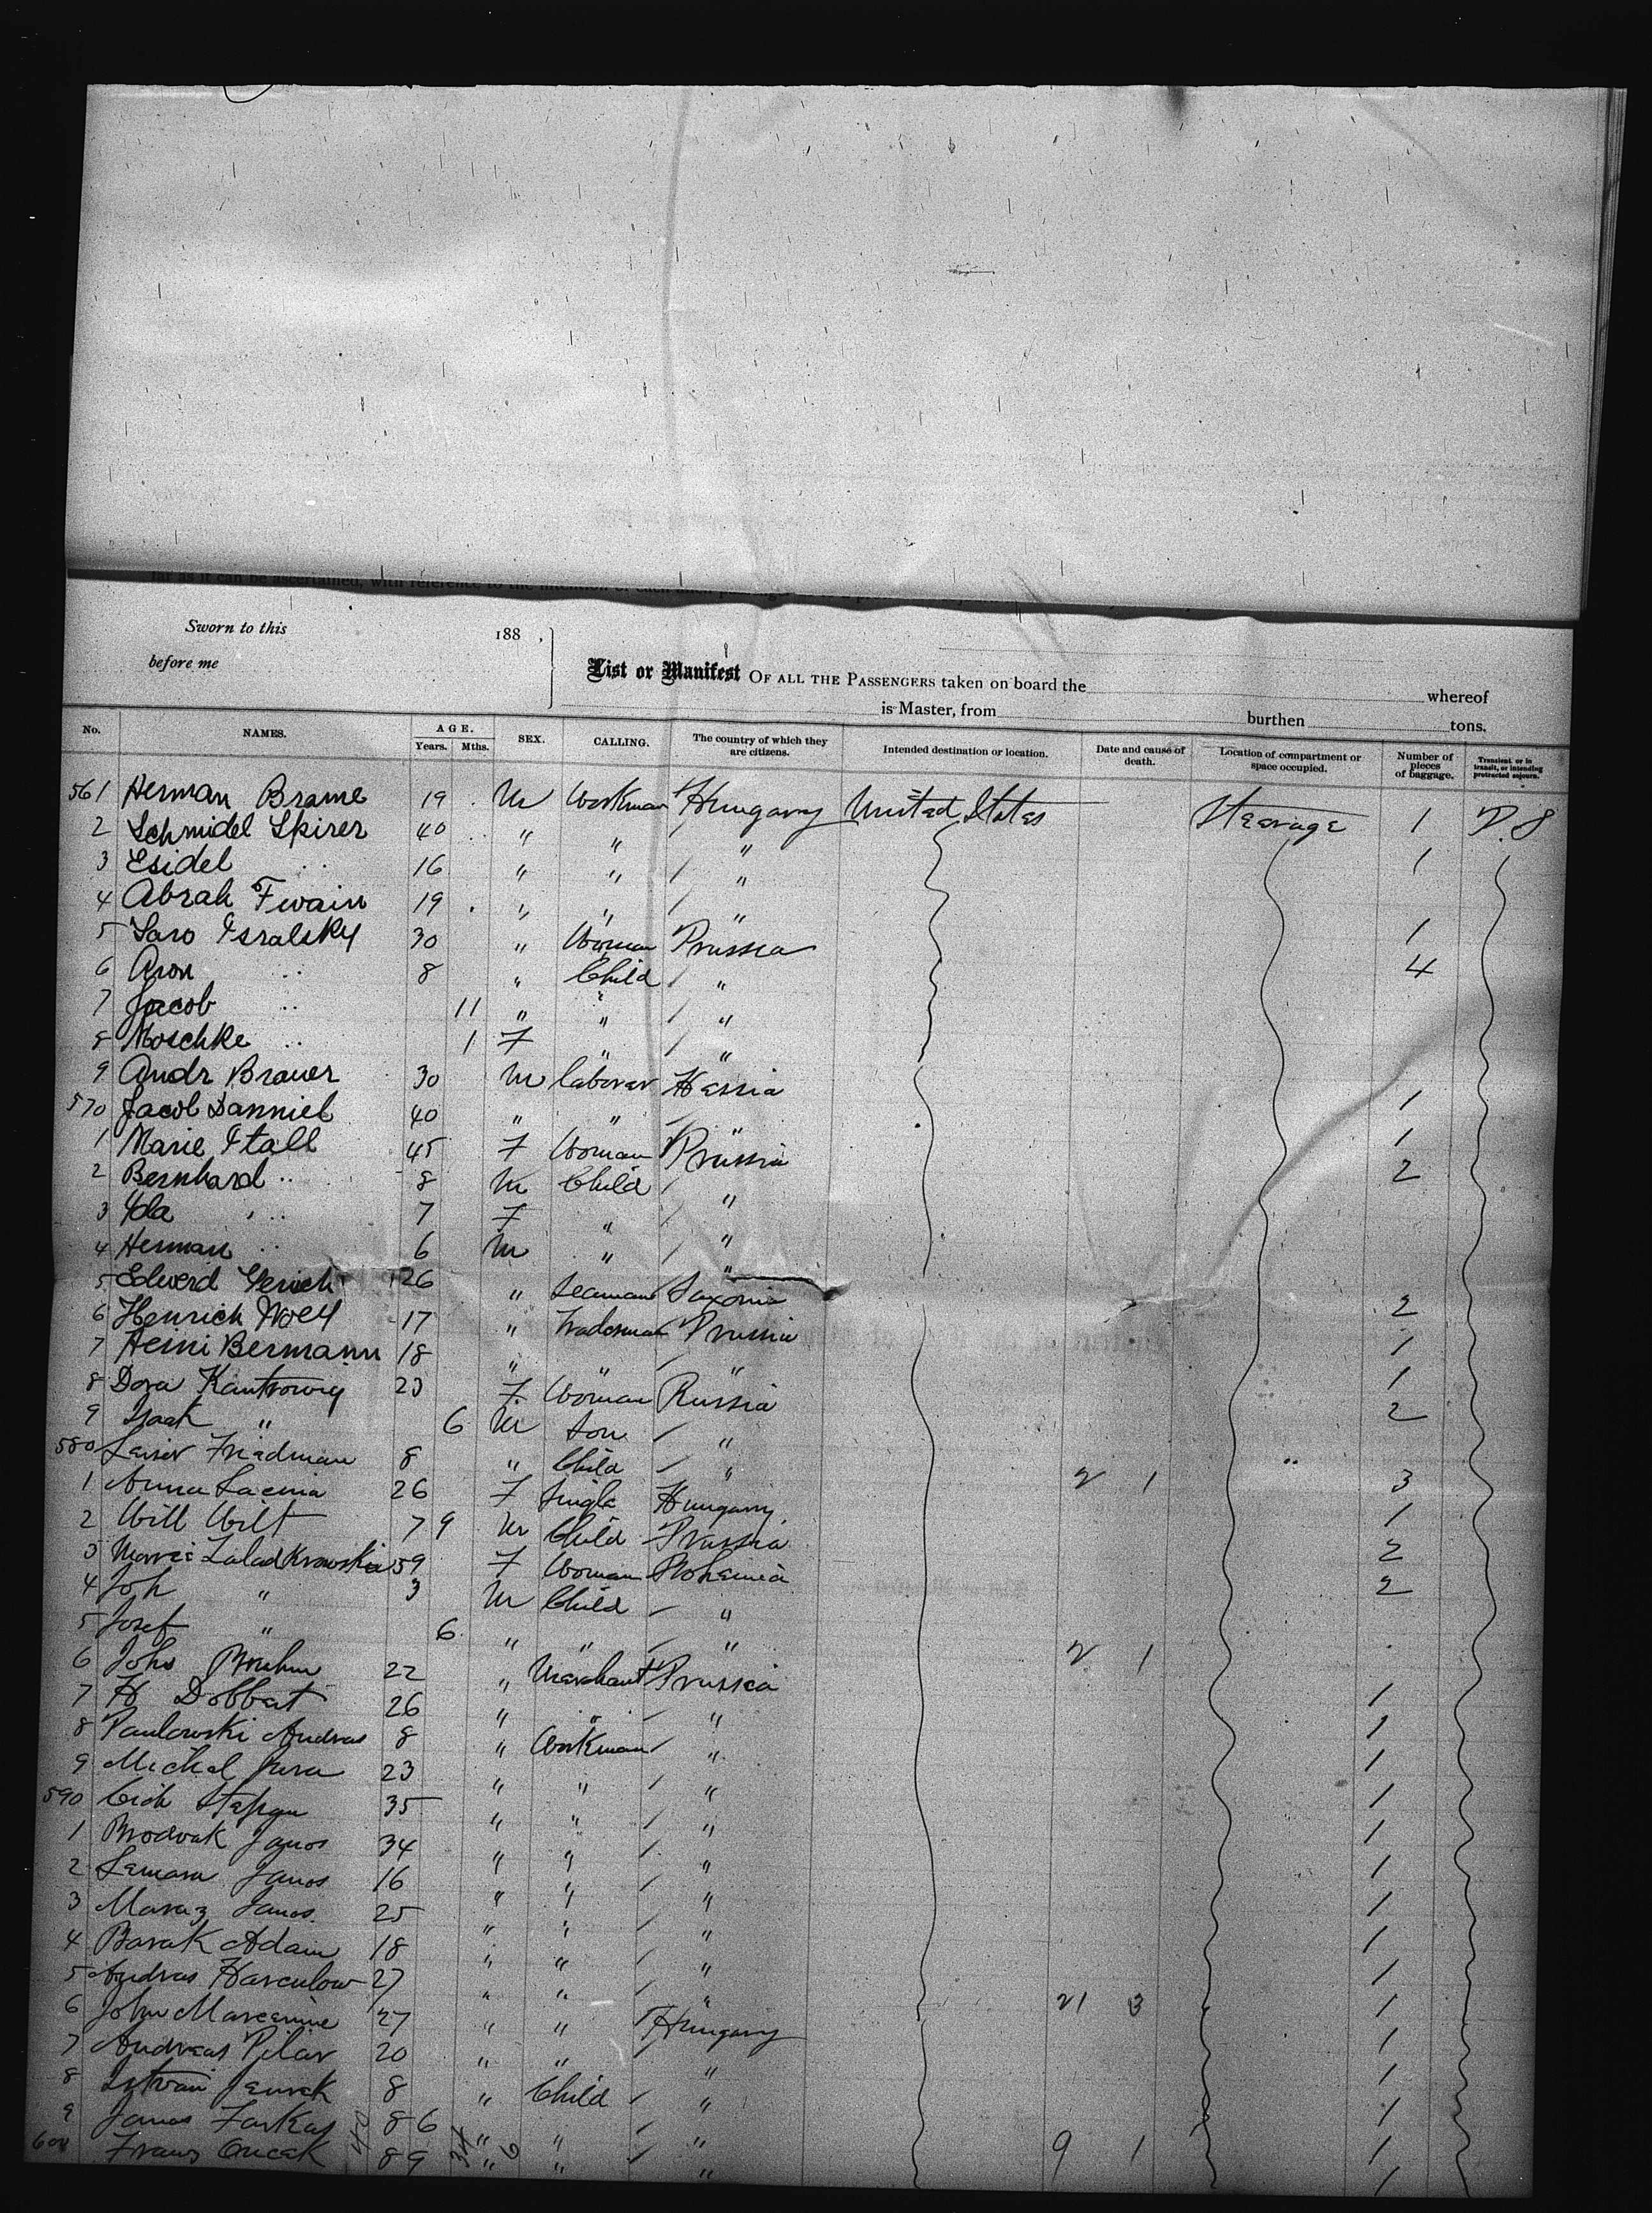 far as it can be ascertained, with reference to the intention of each
Sworn to this 188 .
before me
List or Manifest OF ALL THE PASSENGERS taken on board the whereof
is Master, from burthen tons.
No. NAMES. AGE. Years. Mths. SEX. CALLING. The country of which they are citizens. Intended destination or location. Date and cause of death. Location of compartment or space occupied. Number of pieces of baggage. Transient or in transit, or intending protracted sojourn.
561 Herman Brame 19 M Workman Hungary United States Stearage 1 P.S
2 Schmidel Spirer 40 " " " 1
3 Esidel " 16 " " "
4 Abrah Twain 19 " " " 1
5 Saro Isralsky 30 " Woman Prussia 4
6 Aron " 8 " Child "
7 Jacob " 11 " " "
8 Moschke " 1 F " "
9 Andr Brauer 30 M laborer Hassia 1
570 Jacob Danniel 40 " " " 1
1 Marie Stall 45 F Woman Prussia 2
2 Bernhard " 8 M Child "
3 Yda " 7 F " "
4 Herman " 6 M " "
5 Edward 26 " Seaman Saxonia 2
6 Henrich 17 " Tradesman Prussia 1
7 Heini Bermann 18 " " " 1
8 Dora 23 F Woman Russia 2
9 Isaak " 6 M Son "
580 Friedman 8 " Child " 2 1 3
1 Anna 26 F Single Hungary 1
2 Will Wilt 7 9 M Child Prussia 2
3 59 F Woman Bohemia 2
4 Joh " 3 M Child "
5 Josef " 6 " " " 2 1
6 Johs 22 " Merchant Prussia 1
7 H Dobbert 26 " " " 1
8 Paulowski Andras 8 " Workman " 1
9 Michal 23 " " " 1
590 35 " " " 1
1 Janos 34 " " " 1
2 Janos 16 " " " 1
3 Janos 25 " " " 1
4 Barak Adam 18 " " " 1
5 Andras 27 " " " 21 3 1
6 John 27 " " Hungary 1
7 Andreas Pilar 20 " " " 1
8 Istvan 8 " Child " 1
9 Janos Farkas 8 6 " " " 9 1 1
600 Franz 8 9 " " " 1